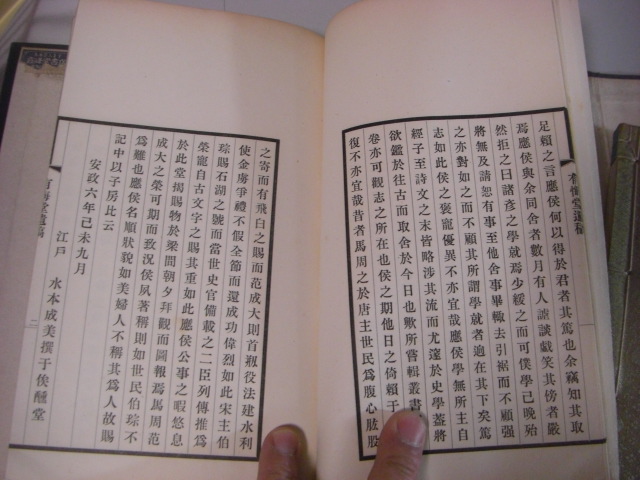 足賴之言應侯何以得於君者其篤也余竊知其取
焉應侯與余同舍者數月有人譃談戯笑其傍者嚴
然拒之曰諸彥之學就焉少緩之而可僕學已晚殆
將無及請恕有事至他舍事畢輙去引裾而不顧强
之亦對如之而不顧其所謂學就者逈在其下矣篤
志如此侯之褒寵優異不亦宜哉應侯學無所主自
經子至詩文之末皆略涉其流而尤邃於史學葢將
欲鑑於往古而取舍於今日也歟所甞輯叢書
卷亦可觀志之所在也侯之期他日之倚賴于
復不亦宜哉昔者馬周之於唐主世民爲腹心肱股
有悔堂遺稿
之寄而有飛白之賜而范成大則首瓶役法建水利
使金虜爭禮不假全節而還成功偉烈如此宋主伯
琮賜石湖之號而當世史官備載之二臣列傳推爲
榮寵自古文字之賜其重如此應侯公事之暇悠息
於此堂揭賜物於梁間朝夕拜觀而圖報焉馬周范
成大之榮可期而致況侯夙著稱則如世民伯琮不
爲難也應侯名順狀貌如美婦人不稱其爲人故賜
記中以子房比云
安政六年己未九月
江戶 水本成美撰于俟醺堂
有悔堂遺稿
二